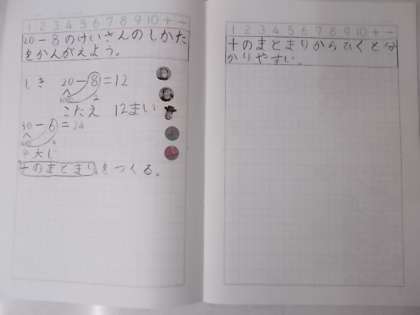 1 2 3 4 5 6 7 8 9 10 + -
20-8のけいさんのしかた
をかんがえよう。
しき 20-8=12
こたえ 12まい
30-6=24
十のまとまりをつくる。
1 2 3 4 5 6 7 8 9 10 + -
十のまとまりからひくとわ
かりやすい。